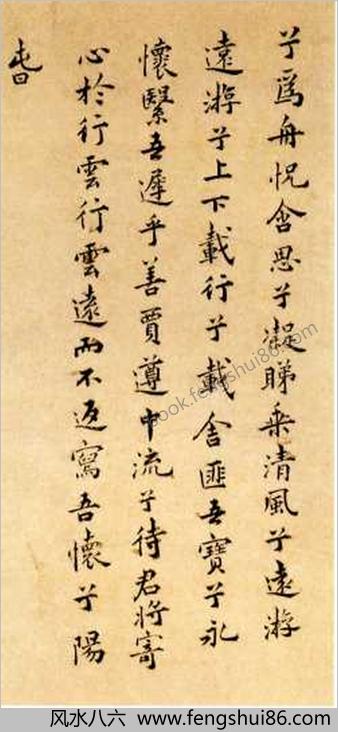 兮爲舟怳含思兮凝睇乘清風兮遠游
遠游兮上下載行兮載舍匪吾寶兮永
懷繄吾遲乎善賈遵中流兮待君將寄
心於行雲行雲遠而不返寫吾懷兮陽
旾
book.fengshui86.com
风水八六 www.fengshui86.com